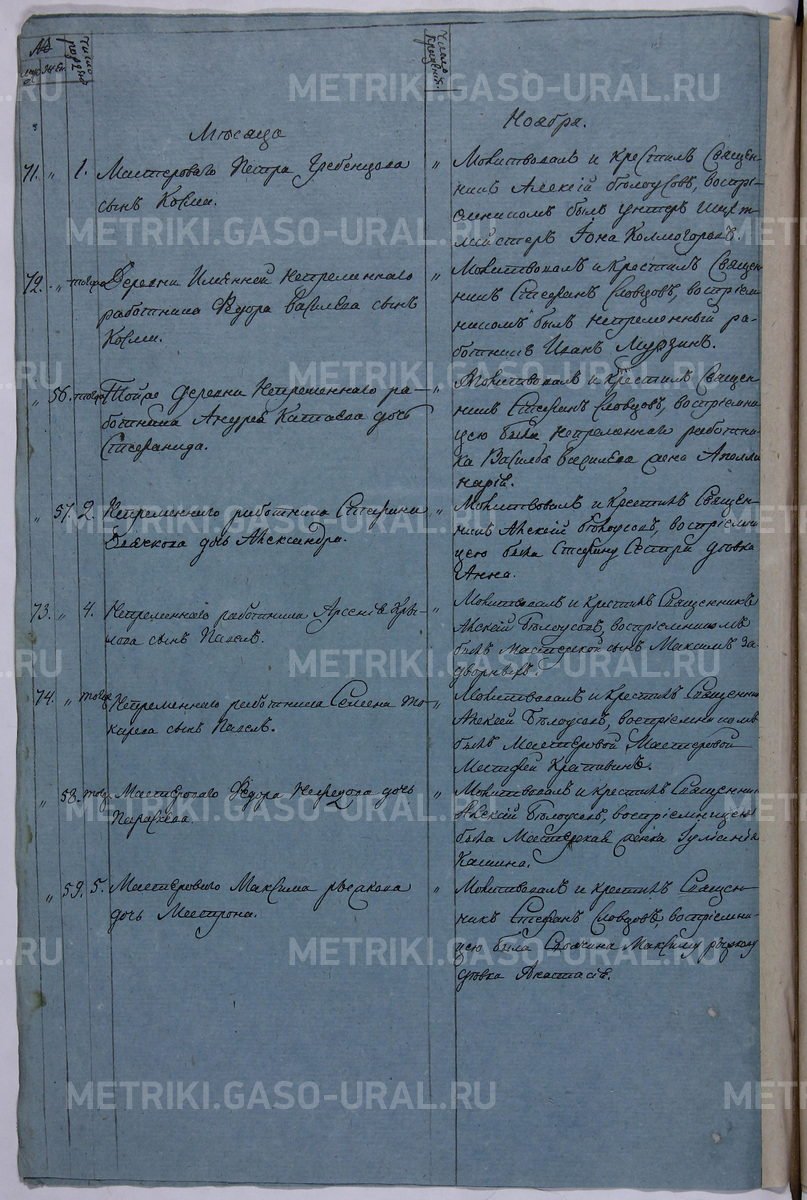 №
муж. жен.
Число рожденiй
Число крещенiй.
Мѣсяца Ноября.
71. „ 1. Мастероваго Петра Гребенщова
сынъ Козма.
„ Молитвовалъ и крестилъ Священ-
никъ Алексiй Бѣлоусовъ, воспрiе-
мникомъ былъ унтеръ Шихт-
мистеръ Iона Колмогоровъ.
72. „ тогоже Деревни Имянной Непременнаго
работника Ѳедора Васильева сынъ
Козма.
„ Молитвовалъ и крестилъ Священ-
никъ Стефанъ Словцовъ, воспрiем-
никомъ былъ непременный ра-
ботникъ Иванъ Мурзинъ.
„ 56. тогоже Тойже деревни Непременнаго ра-
ботника Андрея Катаева дочь
Стефанида.
„ Молитвовалъ и крестилъ Священ-
никъ Стефанъ Словцовъ, воспрiемни-
цею была непременнаго работни-
ка Василья Васильева жена Аполли
нарiя.
„ 57. 2. Непременнаго работника Стефана
дочь Александра.
„ Молитвовалъ и крестилъ Священ-
никъ Алексiй Бѣлоусовъ, воспрiемни
цею была Стефану Сестра дѣвка
Анна.
73. „ 4. Непременнаго работника Арсенiя
сынъ Павелъ.
„ Молитвовалъ и крестилъ Священникъ
Алексiй Бѣлоусовъ, воспрiемникомъ
былъ Мастерской сынъ Максимъ За
дворныхъ.
74. „ тогоже Непременнаго работника Семена То-
карева сынъ Павелъ.
„ Молитвовалъ и крестилъ Священни
Алексiй Бѣлоусовъ, воспрiемникомъ
былъ Мастеровой Мастеровой
Крапивинъ.
„ 58. тогоже Мастероваго Ѳедора дочь
Параскева.
„ Молитвовалъ и крестилъ Священник
Алексiй Бѣлоусовъ, воспрiемницею
была Мастерская женка Iулианiя
Кашина.
„ 59. 5. Мастероваго Максима Русакова
дочь Матрона.
„ Молитвовалъ и крестилъ Священ-
никъ Стефанъ Словцовъ, воспрiемни-
цею была Максиму Русакову
дѣвка Анастасiя.
METRIKI.GASO-URAL.RU